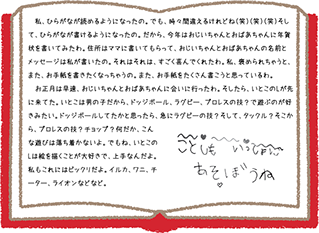 私、ひらがなが読めるようになったの。でも、時々間違えるけれどね(笑)(笑)(笑)そし
て、ひらがなが書けるようになったの。だから、今年はおじいちゃんとおばあちゃんに年賀
状を書いてみたわ。住所はママに書いてもらって、おじいちゃんとおばあちゃんの名前と
メッセージは私が書いたの。それはそれは、すごく喜んでくれたわ。私、褒められちゃうと、
また、お手紙を書きたくなっちゃうの。また、お手紙をたくさん書こうと思っているわ。
お正月は早速、おじいちゃんとおばあちゃんに会いに行ったわ。そしたら、いとこのしが先
に来てた。いとこは男の子だから、ドッジボール、ラグビー、プロレスの技?で遊ぶのが好
きみたい。ドッジボールしてたかと思ったら、急にラグビーの技?そして、タックル?そこか
ら、プロレスの技?チョップ?何だか、こん
な遊びは落ち着かないよ。でもね、いとこの
しは絵を描くことが大好きで、上手なんだよ。
私もこれにはビックリだよ。イルカ、ワニ、チ
ーター、ライオンなどなど。
ことしも いっぱい
あそぼうね